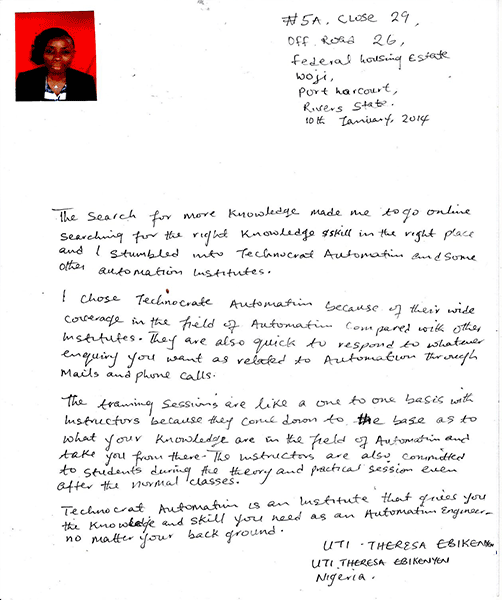 #5A, Close 29,
Off Road 26,
Federal Housing Estate
Woji,
Port Harcourt,
Rivers State.
10th January, 2014
The search for more knowledge made me to go online
searching for the right knowledge &skill in the right place
and I stumbled into Technocrat Automation and some
other automation Institutes.
I chose Technocrate Automation because of their wide
coverage in the field of Automation compared with other
Institutes. They are also quick to respond to whatever
enquiry you want as related to Automation through
Mails and phone calls.
The training sessions are like a one to one basis with
Instructors because they come down to the base as to
what your knowledge are in the field of Automation and
take you from there. The Instructors are also committed
to students during the theory and practical session even
after the normal classes.
Technocrat Automation is an Institute that gives you
the knowledge and skill you need as an Automation Engineer
no matter your back ground.
UTI THERESA EBIKENYEN
UTI THERESA EBIKENYEN
Nigeria.